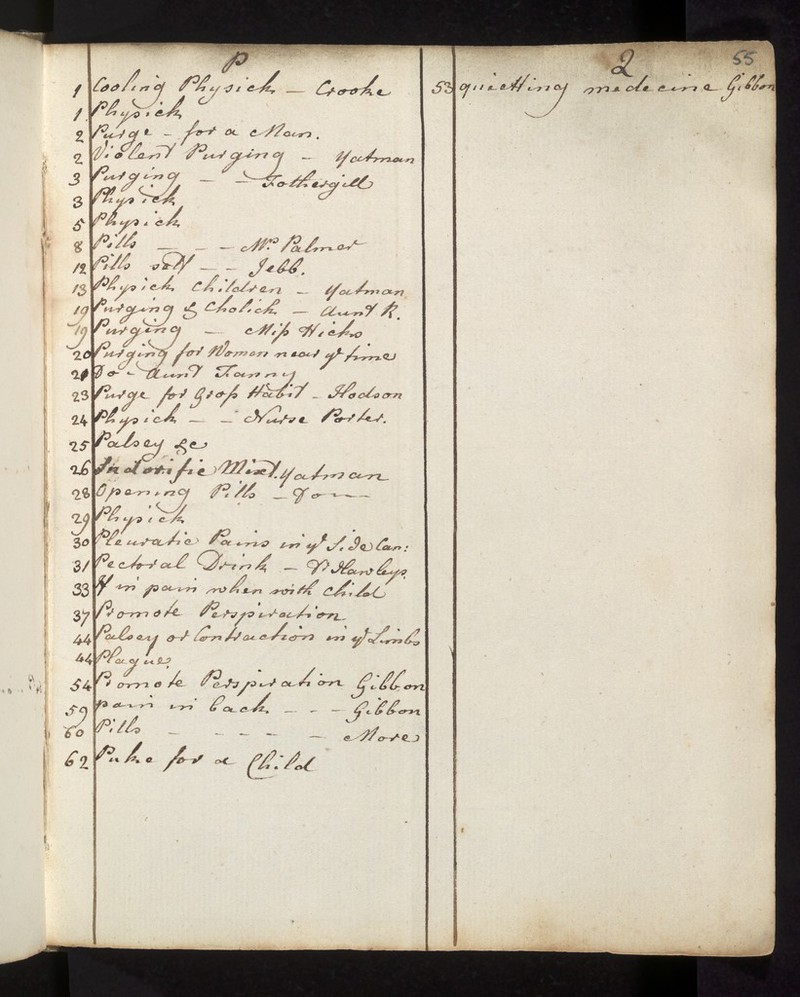 P
1 Cooling Physick – Crooke
1 Physick
2 Purge – for a Man.
2 Violent Purging – Yatman
3 Purging – – Fothergill
3 Physick
5 Physick
8 Pills – – – Mrs Palmer
12 Pills – – Jebb.
13 Physick Children – Yatman
19 Purging & Cholick – Aunt R.
19 Purging – Miss Hicks
20 Purging for Women near ye time
21 Do – Aunt Fanny
23 Purge for Gross Habit – Hodson
24 Physick – – Nurse Porter.
25 Palsey &c
26 Sudorific Mixt. Yatman
28 Opening Pills – Do –
29 Physick
30 Pleuratic Pains in ye Side Can:
31 Pectoral Drink – Dr Hawleys.
33 If in pain when with Child
37 Promote Perspiration
44 Palsey or Contraction in ye Limbs
44 Plague.
54 Promote Perspiration Gibbon
59 pain in back – – – Gibbon
60 Pills – – – – – More
62 Puke for a Child
Q 55
53 quietting medecine Gibbon